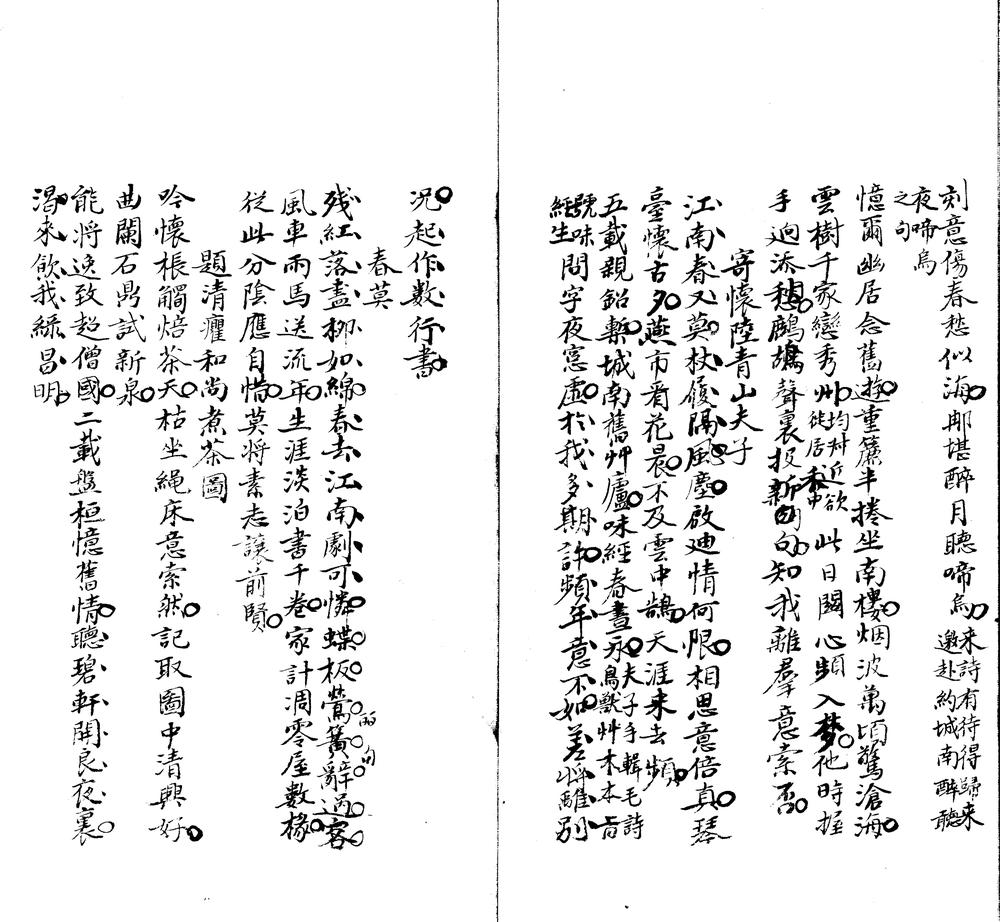 刻意傷春愁似海那堪醉月聽啼烏來詩有待得歸來邀赴約城南醉聽
夜啼烏之句
憶爾幽居念舊遊重簾半捲坐南樓烟波萬頃驚滄海
雲樹千家戀秀州均對近欲徙居秀中此日關心頻入夢他時握
手迴添愁鷓鴣聲裏投新句知我離羣意索否
寄懷陸青山夫子
江南春又莫杖履隔風塵啟迪情何限相思意倍真琴
臺懷古夕燕市看花晨不及雲中鵲天涯來去頻
五載親鉛槧城南舊艸廬味經春晝永夫子手輯毛詩鳥獸艸木本旨
號味經生問字夜窗虛於我多期許頻年意不如差將離別
況起作數行書
春莫
殘紅落盡柳如綿春去江南劇可憐蝶板鶯簧辭過客
的句
風車雨馬送流年生涯淡泊書千卷家計凋零屋數椽
從此分陰應自惜莫將素志讓前賢
題清癯和尚煮茶圖
吟懷棖觸焙茶天枯坐繩床意索然記取圖中清興好
曲闌石鼎試新泉
能將逸致超僧國二載盤桓憶舊情聽碧軒開良夜裏
渴來飲我綠昌明